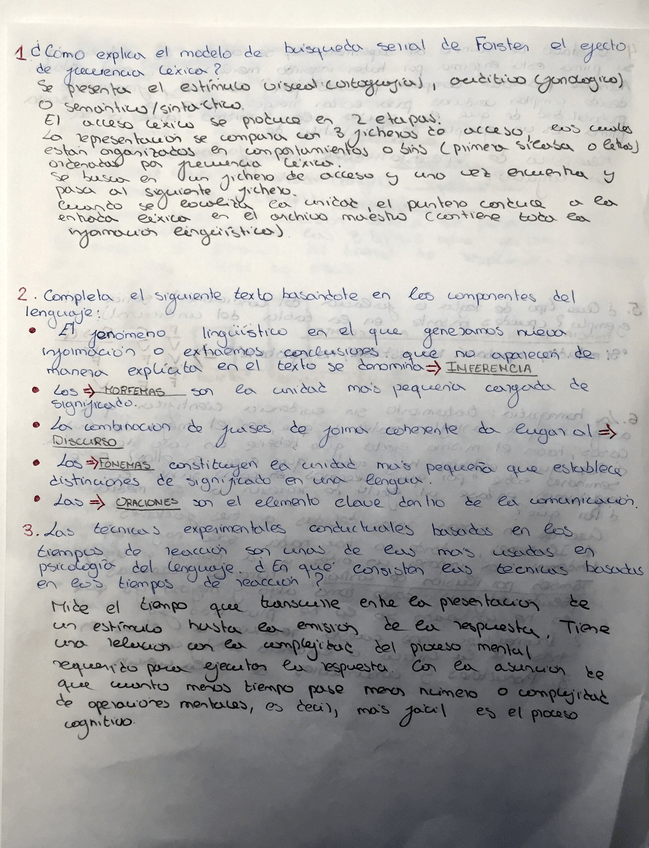 1 ¿Cómo explica el modelo de búsqueda serial de Forster el efecto
de frecuencia léxica?
Se presenta el estímulo visual (ortografía), auditivo (fonológico)
o semántico/sintáctico.
El acceso léxico se produce en 2 etapas.
La representación se compara con 3 ficheros de acceso, los cuales
están organizados en comportamientos o bins (primera sílaba o letras)
ordenadas por frecuencia léxica.
Se busca en un fichero de acceso y una vez encuentra y
pasa al siguiente fichero.
Cuando se localiza la unidad, el puntero conduce a la
entrada léxica en el archivo maestro (contiene toda la
información lingüística).
2. Completa el siguiente texto basándote en los componentes del
lenguaje:
• El fenómeno lingüístico en el que generamos nueva
información o extraemos conclusiones que no aparecen de
manera explícita en el texto se denomina ⇒ INFERENCIA
• Los ⇒ MORFEMAS son la unidad más pequeña cargada de
significado.
• La combinación de frases de forma coherente da lugar al ⇒
DISCURSO
• Los ⇒ FONEMAS constituyen la unidad más pequeña que establece
distinciones de significado en una lengua.
• Las ⇒ ORACIONES son el elemento clave dentro de la comunicación.
3. Las técnicas experimentales conductuales basadas en los
tiempos de reacción son unas de las más usadas en
psicología del lenguaje. ¿En qué consisten las técnicas basadas
en los tiempos de reacción?
Mide el tiempo que transcurre entre la presentación de
un estímulo hasta la emisión de la respuesta. Tiene
una relación con la complejidad del proceso mental
requerido para ejecutar la respuesta. Con la asunción de
que cuanto menos tiempo pase menor número o complejidad
de operaciones mentales, es decir, más fácil es el proceso
cognitivo.